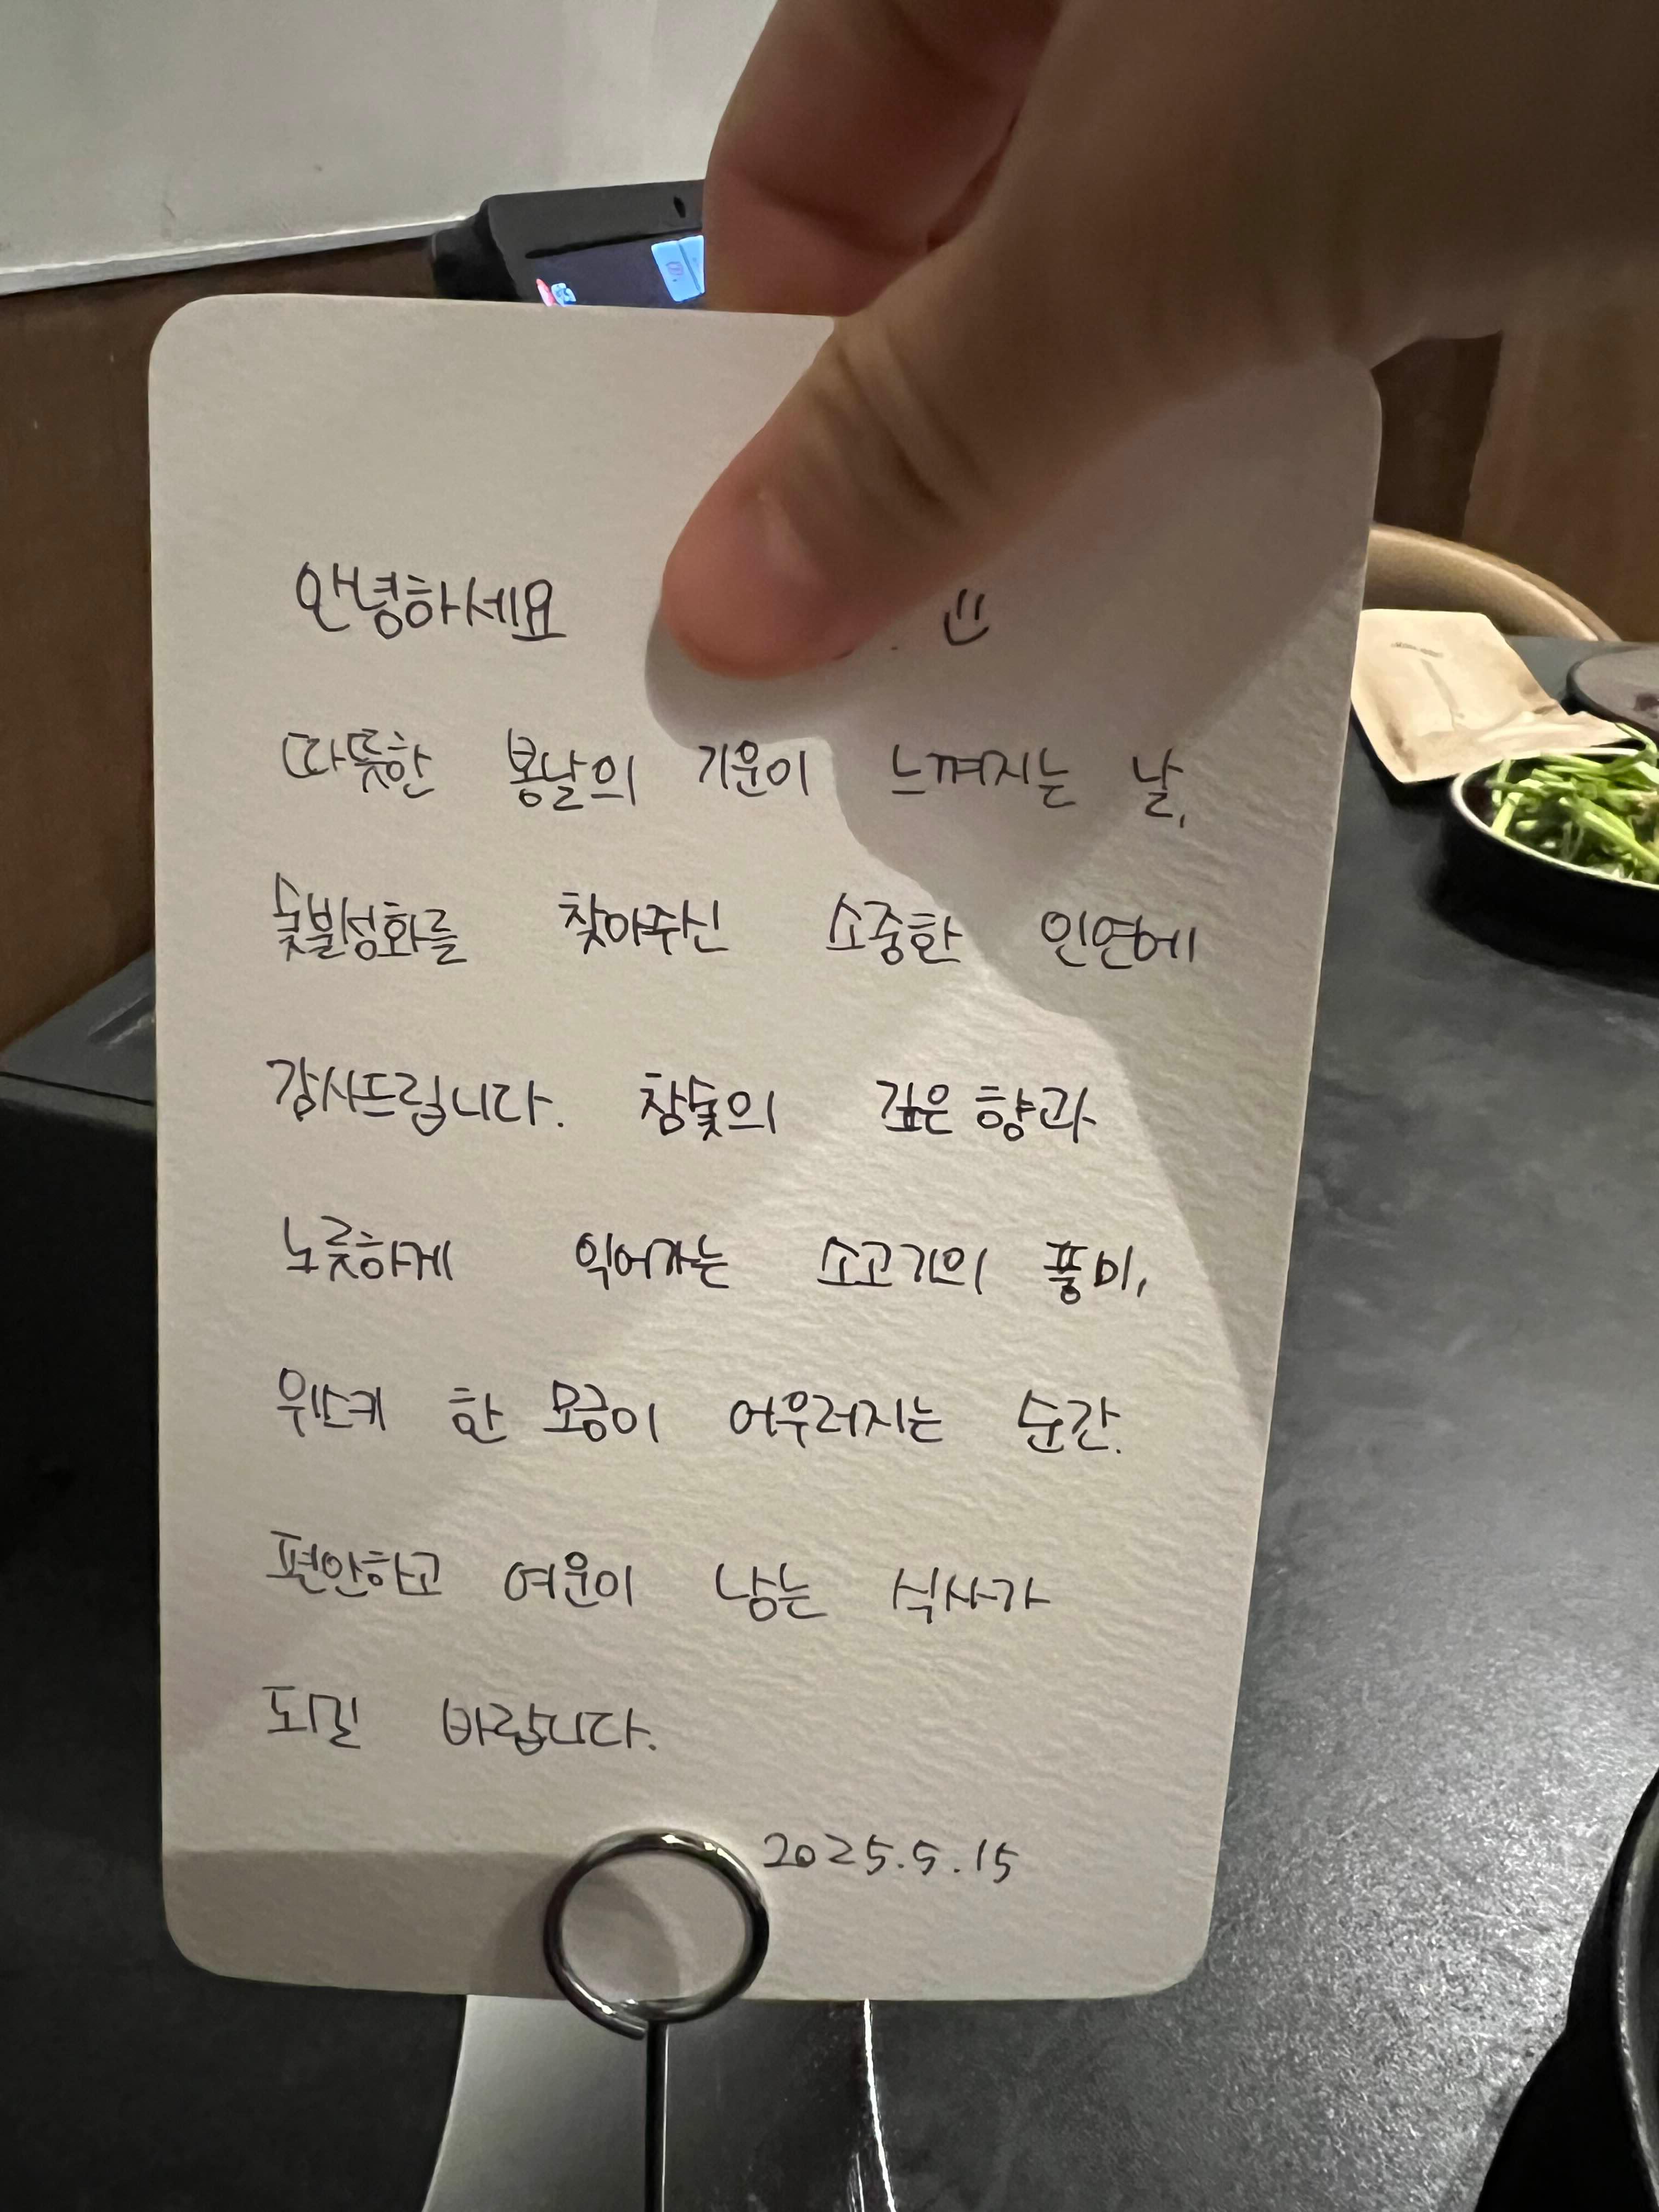 안녕하세요
따뜻한 봄날의 기운이 느껴지는 날,
숯불성화를 찾아주신 소중한 인연에
감사드립니다. 참숯의 깊은 향과
노릇하게 익어가는 소고기의 풍미,
위스키 한 모금이 어우러지는 순간.
편안하고 여운이 남는 식사가
되길 바랍니다.
2025.5.15